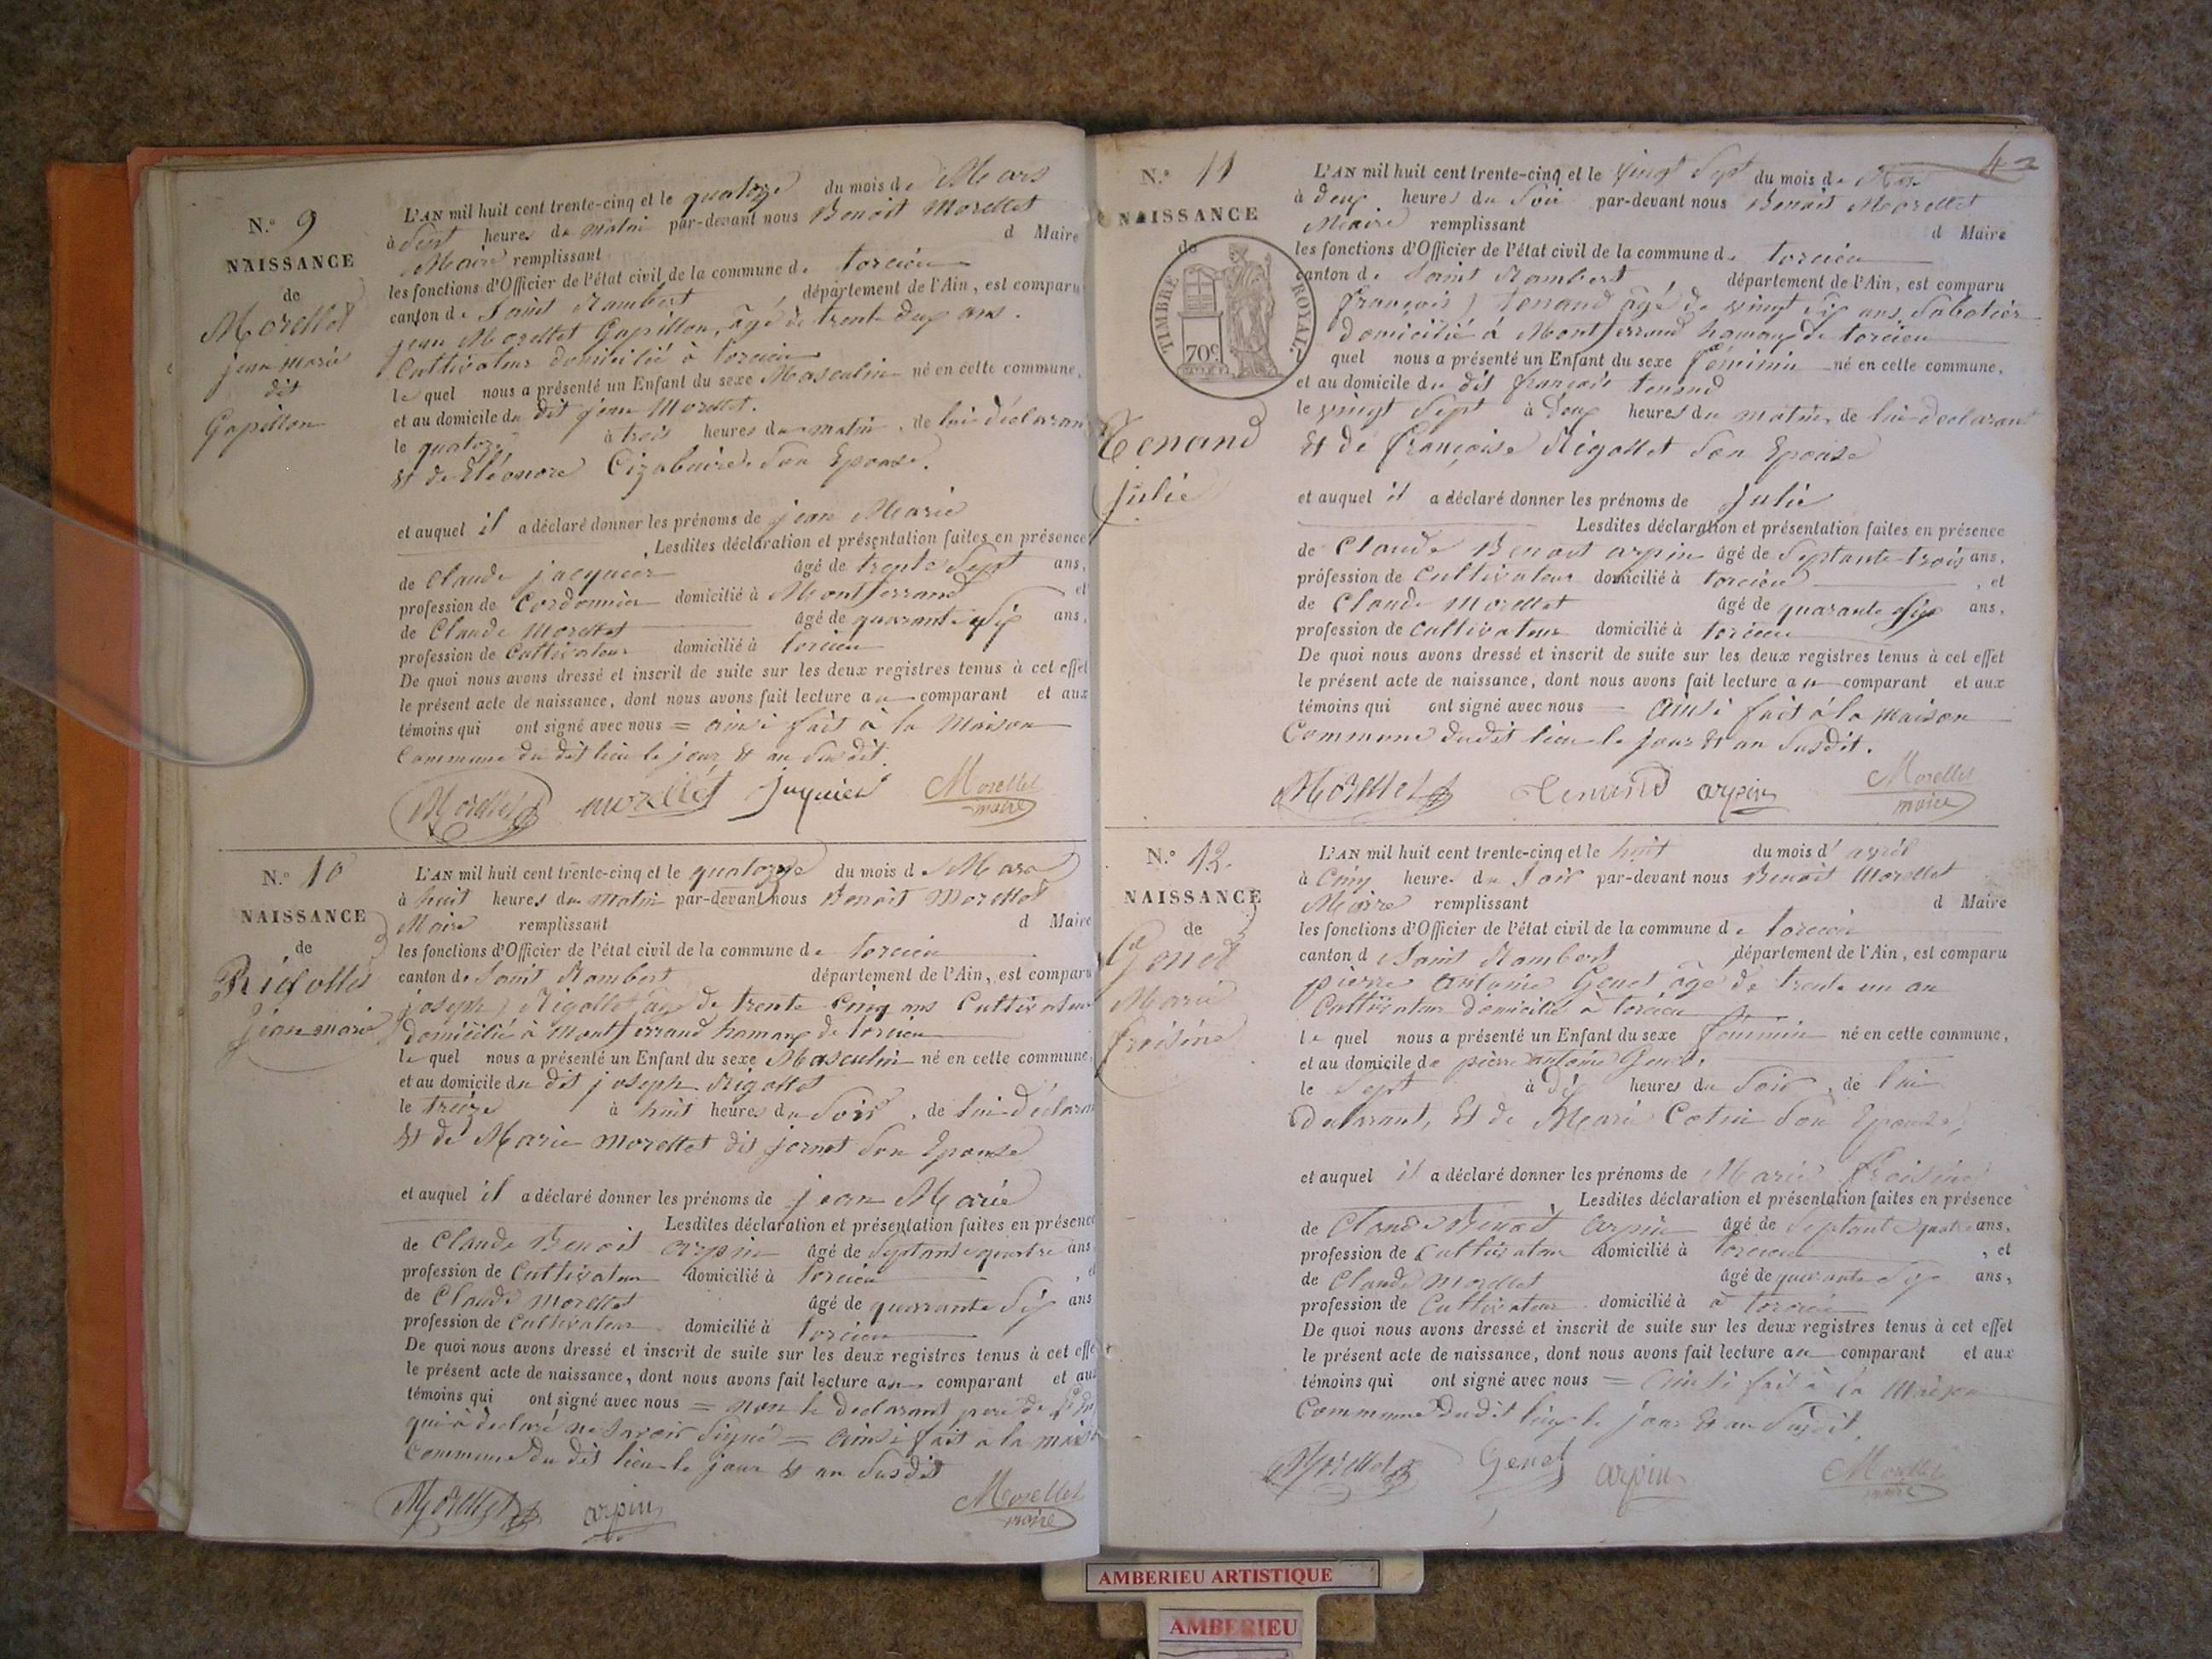 N.° 9
NAISSANCE
de
Morellet
jean marie
dit
Gapillon
L'AN mil huit cent trente-cinq et le quatorze du mois de Mars
à Sept heures du matin par-devant nous Benoit Morellet
Maire remplissant d Maire
les fonctions d'Officier de l'état civil de la commune de torcieu
canton de Saint Rambert département de l'Ain, est comparu
jean Morellet Gapillon, âgé de trente deux ans.
Cultivateur domicilié à torcieu
le quel nous a présenté un Enfant du sexe Masculin né en cette commune,
et au domicile du dit jean Morellet.
le quatorze à trois heures du matin, de lui déclarant
Et de Eléonore Son Epouse.
et auquel il a déclaré donner les prénoms de jean Marie
Lesdites déclaration et présentation faites en présence
de Claude jacquier âgé de trente Sept ans,
profession de Cordonnier domicilié à Montferrand et
de Claude Morellet âgé de quarante Six ans,
profession de Cultivateur domicilié à torcieu
De quoi nous avons dressé et inscrit de suite sur les deux registres tenus à cet effet
le présent acte de naissance, dont nous avons fait lecture au comparant et aux
témoins qui ont signé avec nous = ainsi fait à la Maison
Commune du dit lieu le jour Et an Susdit.
Morellet morellet jaquier Morellet
maire
N.° 10
NAISSANCE
de
Rigollet
jean marie
L'AN mil huit cent trente-cinq et le quatorze du mois de Mars
à huit heures du matin par-devant nous Benoit Morellet
Maire remplissant d Maire
les fonctions d'Officier de l'état civil de la commune de torcieu
canton de Saint Rambert département de l'Ain, est comparu
joseph Rigollet âgé de trente cinq ans Cultivateur
domicilié à Montferrand hamaux de torcieu
le quel nous a présenté un Enfant du sexe Masculin né en cette commune,
et au domicile du dit joseph Rigollet
le treize à huit heures du Soir, de lui déclarant
Et de Marie Morellet dit jornet Son Epouse
et auquel il a déclaré donner les prénoms de jean Marie
Lesdites déclaration et présentation faites en présence
de Claude Benoit arpin âgé de Septante quatre ans
profession de Cultivateur domicilié à torcieu, et
de Claude Morellet âgé de quarante Six ans
profession de Cultivateur domicilié à torcieu
De quoi nous avons dressé et inscrit de suite sur les deux registres tenus à cet effet
le présent acte de naissance, dont nous avons fait lecture au comparant et aux
témoins qui ont signé avec nous = non le declarant pere de
qui à declaré ne Savoir Signé = ainsi fait a la
Commune du dit lieu le jour Et an Susdit
Morellet arpin Morellet
maire
42
N.° 11
NAISSANCE
de
TIMBRE ROYAL.
70c
Tenand
julie
L'AN mil huit cent trente-cinq et le vingt Sept du mois de Mars
à deux heures du Soir par-devant nous Benoit Morellet
Maire remplissant d Maire
les fonctions d'Officier de l'état civil de la commune de torcieu
canton de Saint Rambert département de l'Ain, est comparu
françois tenand âgé de vingt Six ans, Sabotier
domicilié à Montferrand hamaux de torcieu
quel nous a présenté un Enfant du sexe féminin né en cette commune,
et au domicile du dit françois tenand
le vingt Sept à deux heures du matin, de lui declarant
Et de françoise Rigollet Son Epouse
et auquel il a déclaré donner les prénoms de julie
Lesdites déclaration et présentation faites en présence
de Claude Benoit arpin âgé de Septante trois ans,
profession de Cultivateur domicilié à torcieu, et
de Claude Morellet âgé de quarante Six ans,
profession de Cultivateur domicilié à torcieu
De quoi nous avons dressé et inscrit de suite sur les deux registres tenus à cet effet
le présent acte de naissance, dont nous avons fait lecture au comparant et aux
témoins qui ont signé avec nous = ainsi fait à la Maison
Commune dudit lieu le jour Et an Susdit.
Morellet Tenand arpin Morellet
maire
N.° 12.
NAISSANCE
de
Genet
Marie
froisine
L'AN mil huit cent trente-cinq et le huit du mois d' avril
à Cinq heures du Soir par-devant nous Benoit Morellet
Maire remplissant d Maire
les fonctions d'Officier de l'état civil de la commune de torcieu
canton d Saint Rambert département de l'Ain, est comparu
pierre antoine Genet âgé de trente un an
Cultivateur domicilié à torcieu
le quel nous a présenté un Enfant du sexe féminin né en cette commune,
et au domicile de pierre antoine Genet.
le Sept à dix heures du Soir, de lui
declarant, Et de Marie Cotin Son Epouse,
et auquel il a déclaré donner les prénoms de Marie froisine
Lesdites déclaration et présentation faites en présence
de Claude Benoit arpin âgé de Septante quatre ans,
profession de Cultivateur domicilié à torcieu, et
de Claude Morellet âgé de quarante Six ans,
profession de Cultivateur domicilié à à torcieu
De quoi nous avons dressé et inscrit de suite sur les deux registres tenus à cet effet
le présent acte de naissance, dont nous avons fait lecture au comparant et aux
témoins qui ont signé avec nous = ainsi fait à la Maison
Commune dudit lieu le jour Et an Susdit.
Morellet Genet arpin Morellet
maire
AMBERIEU ARTISTIQUE
AMBERIEU